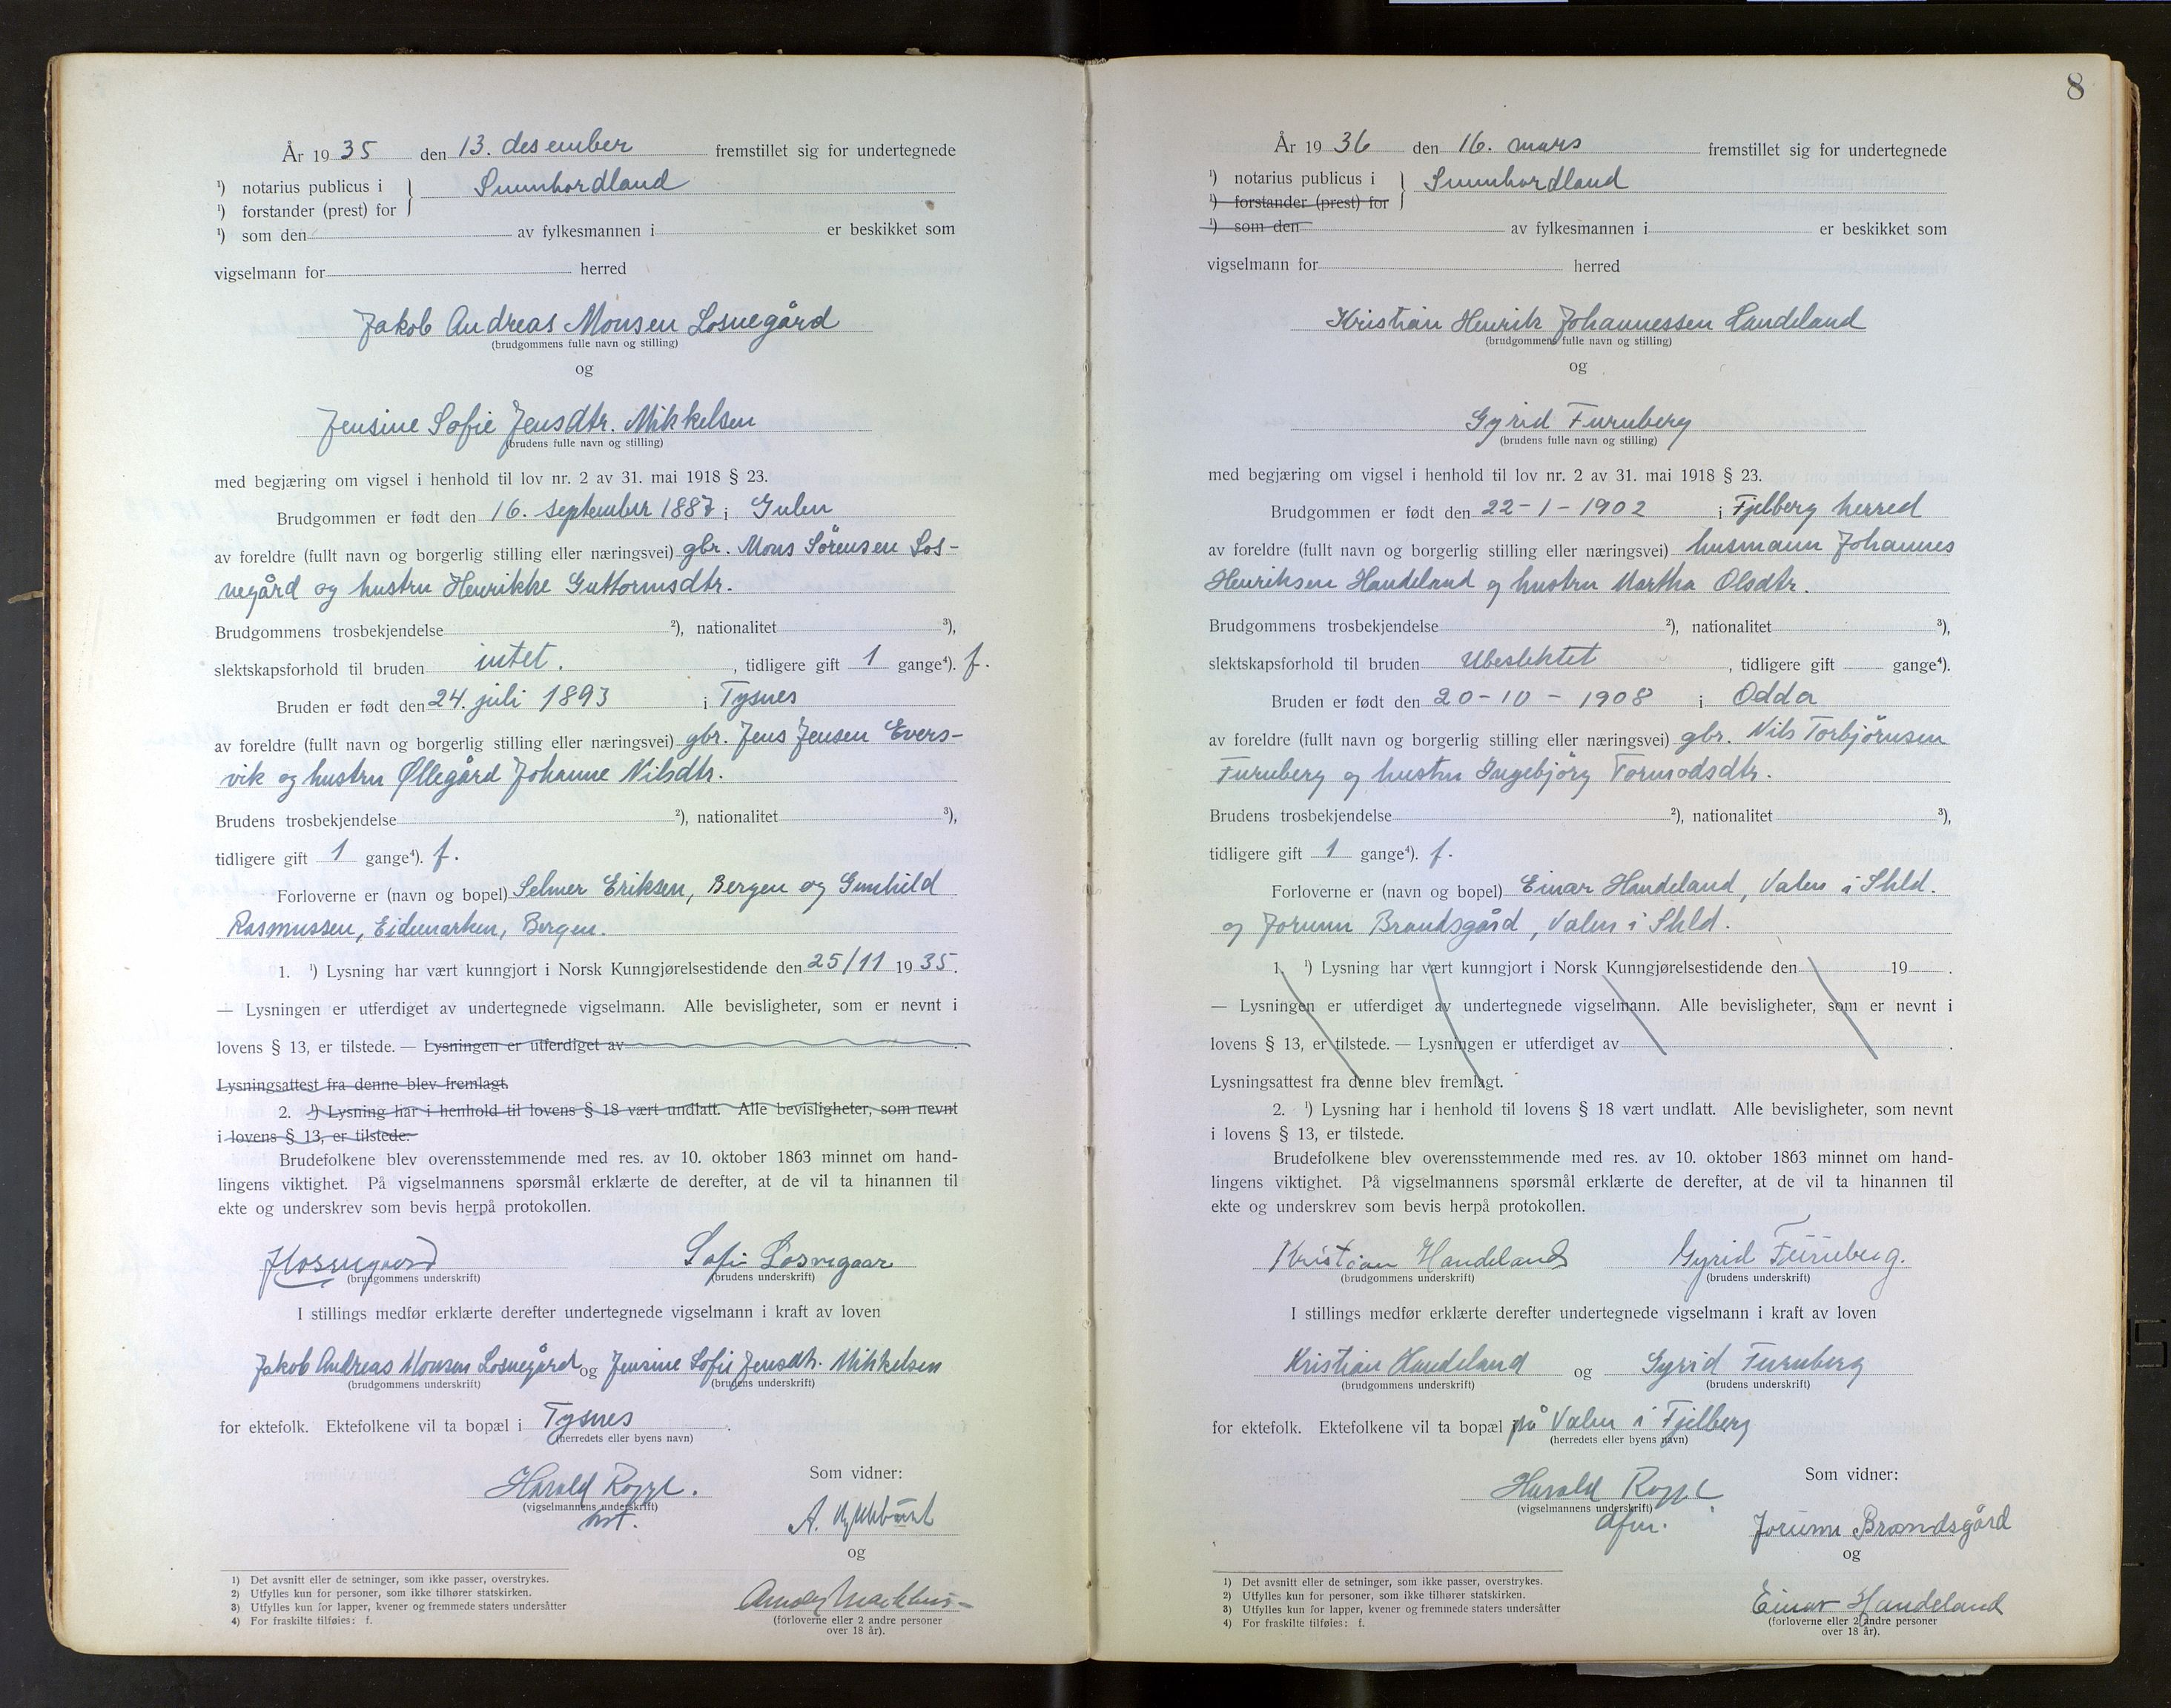 År 1935 den 13. desember fremstillet sig for undertegnede
¹) notarius publicus i } Sunnhordland
¹) forstander (prest) for
¹) som den av fylkesmannen i er beskikket som
vigselmann for herred
Jakob Andreas Monsen Losnegård
(brudgommens fulle navn og stilling)
og
Jensine Sofie Jensdtr. Mikkelsen
(brudens fulle navn og stilling)
med begjæring om vigsel i henhold til lov nr. 2 av 31. mai 1918 § 23.
Brudgommen er født den 16. september 1887 i Gulen
av foreldre (fullt navn og borgerlig stilling eller næringsvei) gbr. Mons Sörensen Los-
negård og hustru Henrikke Guttormsdtr.
Brudgommens trosbekjendelse ²), nationalitet ³),
slektskapsforhold til bruden intet. , tidligere gift 1 gange⁴). f.
Bruden er født den 24. juli 1893 i Tysnes
av foreldre (fullt navn og borgerlig stilling eller næringsvei) gbr. Jens Jensen Evers-
vik og hustru Øllegård Johanne Nilsdtr.
Brudens trosbekjendelse ²), nationalitet ³),
tidligere gift 1 gange⁴). f.
Forloverne er (navn og bopel) Selmer Eriksen, Bergen og Gunhild
Rasmussen, Eidemarken, Bergen.
1. ¹) Lysning har vært kunngjort i Norsk Kunngjørelsestidende den 25/11 1935.
— Lysningen er utferdiget av undertegnede vigselmann. Alle bevisligheter, som er nevnt i
lovens § 13, er tilstede. — Lysningen er utferdiget av .
Lysningsattest fra denne blev fremlagt.
2. ¹) Lysning har i henhold til lovens § 18 vært undlatt. Alle bevisligheter, som nevnt
i lovens § 13, er tilstede.
Brudefolkene blev overensstemmende med res. av 10. oktober 1863 minnet om hand-
lingens viktighet. På vigselmannens spørsmål erklærte de derefter, at de vil ta hinannen til
ekte og underskrev som bevis herpå protokollen.
JLosnegaard Sofie Losnegaar
(brudgommens underskrift) (brudens underskrift)
I stillings medfør erklærte derefter undertegnede vigselmann i kraft av loven
Jakob Andreas Monsen Losnegård og Jensine Sofie Jensdtr. Mikkelsen
(brudgommens underskrift) (brudens underskrift)
for ektefolk. Ektefolkene vil ta bopæl i Tysnes .
(herredets eller byens navn)
Harald Rogge.
(vigselmannens underskrift)
Som vidner:
A.
og
(forloverne eller 2 andre personer
over 18 år).
1) Det avsnitt eller de setninger, som ikke passer, overstrykes.
2) Utfylles kun for personer, som ikke tilhører statskirken.
3) Utfylles kun for lapper, kvener og fremmede staters undersåtter
4) For fraskilte tilføies: f.
8
År 1936 den 16. mars fremstillet sig for undertegnede
¹) notarius publicus i } Sunnhordland
¹) forstander (prest) for
¹) som den av fylkesmannen i er beskikket som
vigselmann for herred
Kristian Henrik Johannessen Handeland
(brudgommens fulle navn og stilling)
og
Gyrid Furuberg
(brudens fulle navn og stilling)
med begjæring om vigsel i henhold til lov nr. 2 av 31. mai 1918 § 23.
Brudgommen er født den 22-1-1902 i Fjelberg herred
av foreldre (fullt navn og borgerlig stilling eller næringsvei) husmann Johannes
Henriksen Handeland og hustru Martha Olsdtr.
Brudgommens trosbekjendelse ²), nationalitet ³),
slektskapsforhold til bruden Ubeslektet , tidligere gift gange⁴).
Bruden er født den 20-10-1908 i Odda
av foreldre (fullt navn og borgerlig stilling eller næringsvei) gbr. Nils Torbjörnsen
Furuberg og hustru Ingebjörg Tormodsdtr.
Brudens trosbekjendelse ²), nationalitet ³),
tidligere gift 1 gange⁴). f.
Forloverne er (navn og bopel) Einar Handeland, Valen i Shld.
og Jorunn Brandsgård, Valen i Shld.
1. ¹) Lysning har vært kunngjort i Norsk Kunngjørelsestidende den 19 .
— Lysningen er utferdiget av undertegnede vigselmann. Alle bevisligheter, som er nevnt i
lovens § 13, er tilstede. — Lysningen er utferdiget av .
Lysningsattest fra denne blev fremlagt.
2. ¹) Lysning har i henhold til lovens § 18 vært undlatt. Alle bevisligheter, som nevnt
i lovens § 13, er tilstede.
Brudefolkene blev overensstemmende med res. av 10. oktober 1863 minnet om hand-
lingens viktighet. På vigselmannens spørsmål erklærte de derefter, at de vil ta hinannen til
ekte og underskrev som bevis herpå protokollen.
Kristian Handeland Gyrid Furuberg.
(brudgommens underskrift) (brudens underskrift)
I stillings medfør erklærte derefter undertegnede vigselmann i kraft av loven
Kristian Handeland og Gyrid Furuberg
(brudgommens underskrift) (brudens underskrift)
for ektefolk. Ektefolkene vil ta bopæl på Valen i Fjelberg
(herredets eller byens navn)
Harald Rogge
(vigselmannens underskrift)
dfm.
Som vidner:
Jorunn Brandsgård
og
Einar Handeland
(forloverne eller 2 andre personer
over 18 år).
1) Det avsnitt eller de setninger, som ikke passer, overstrykes.
2) Utfylles kun for personer, som ikke tilhører statskirken.
3) Utfylles kun for lapper, kvener og fremmede staters undersåtter
4) For fraskilte tilføies: f.